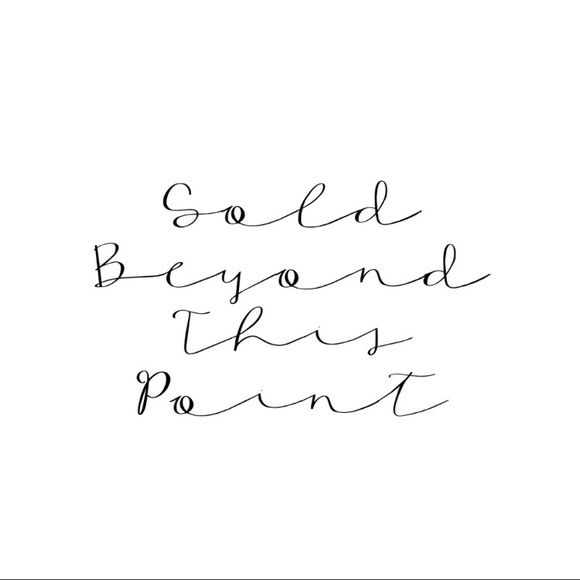 Sold
Beyond
This
Point